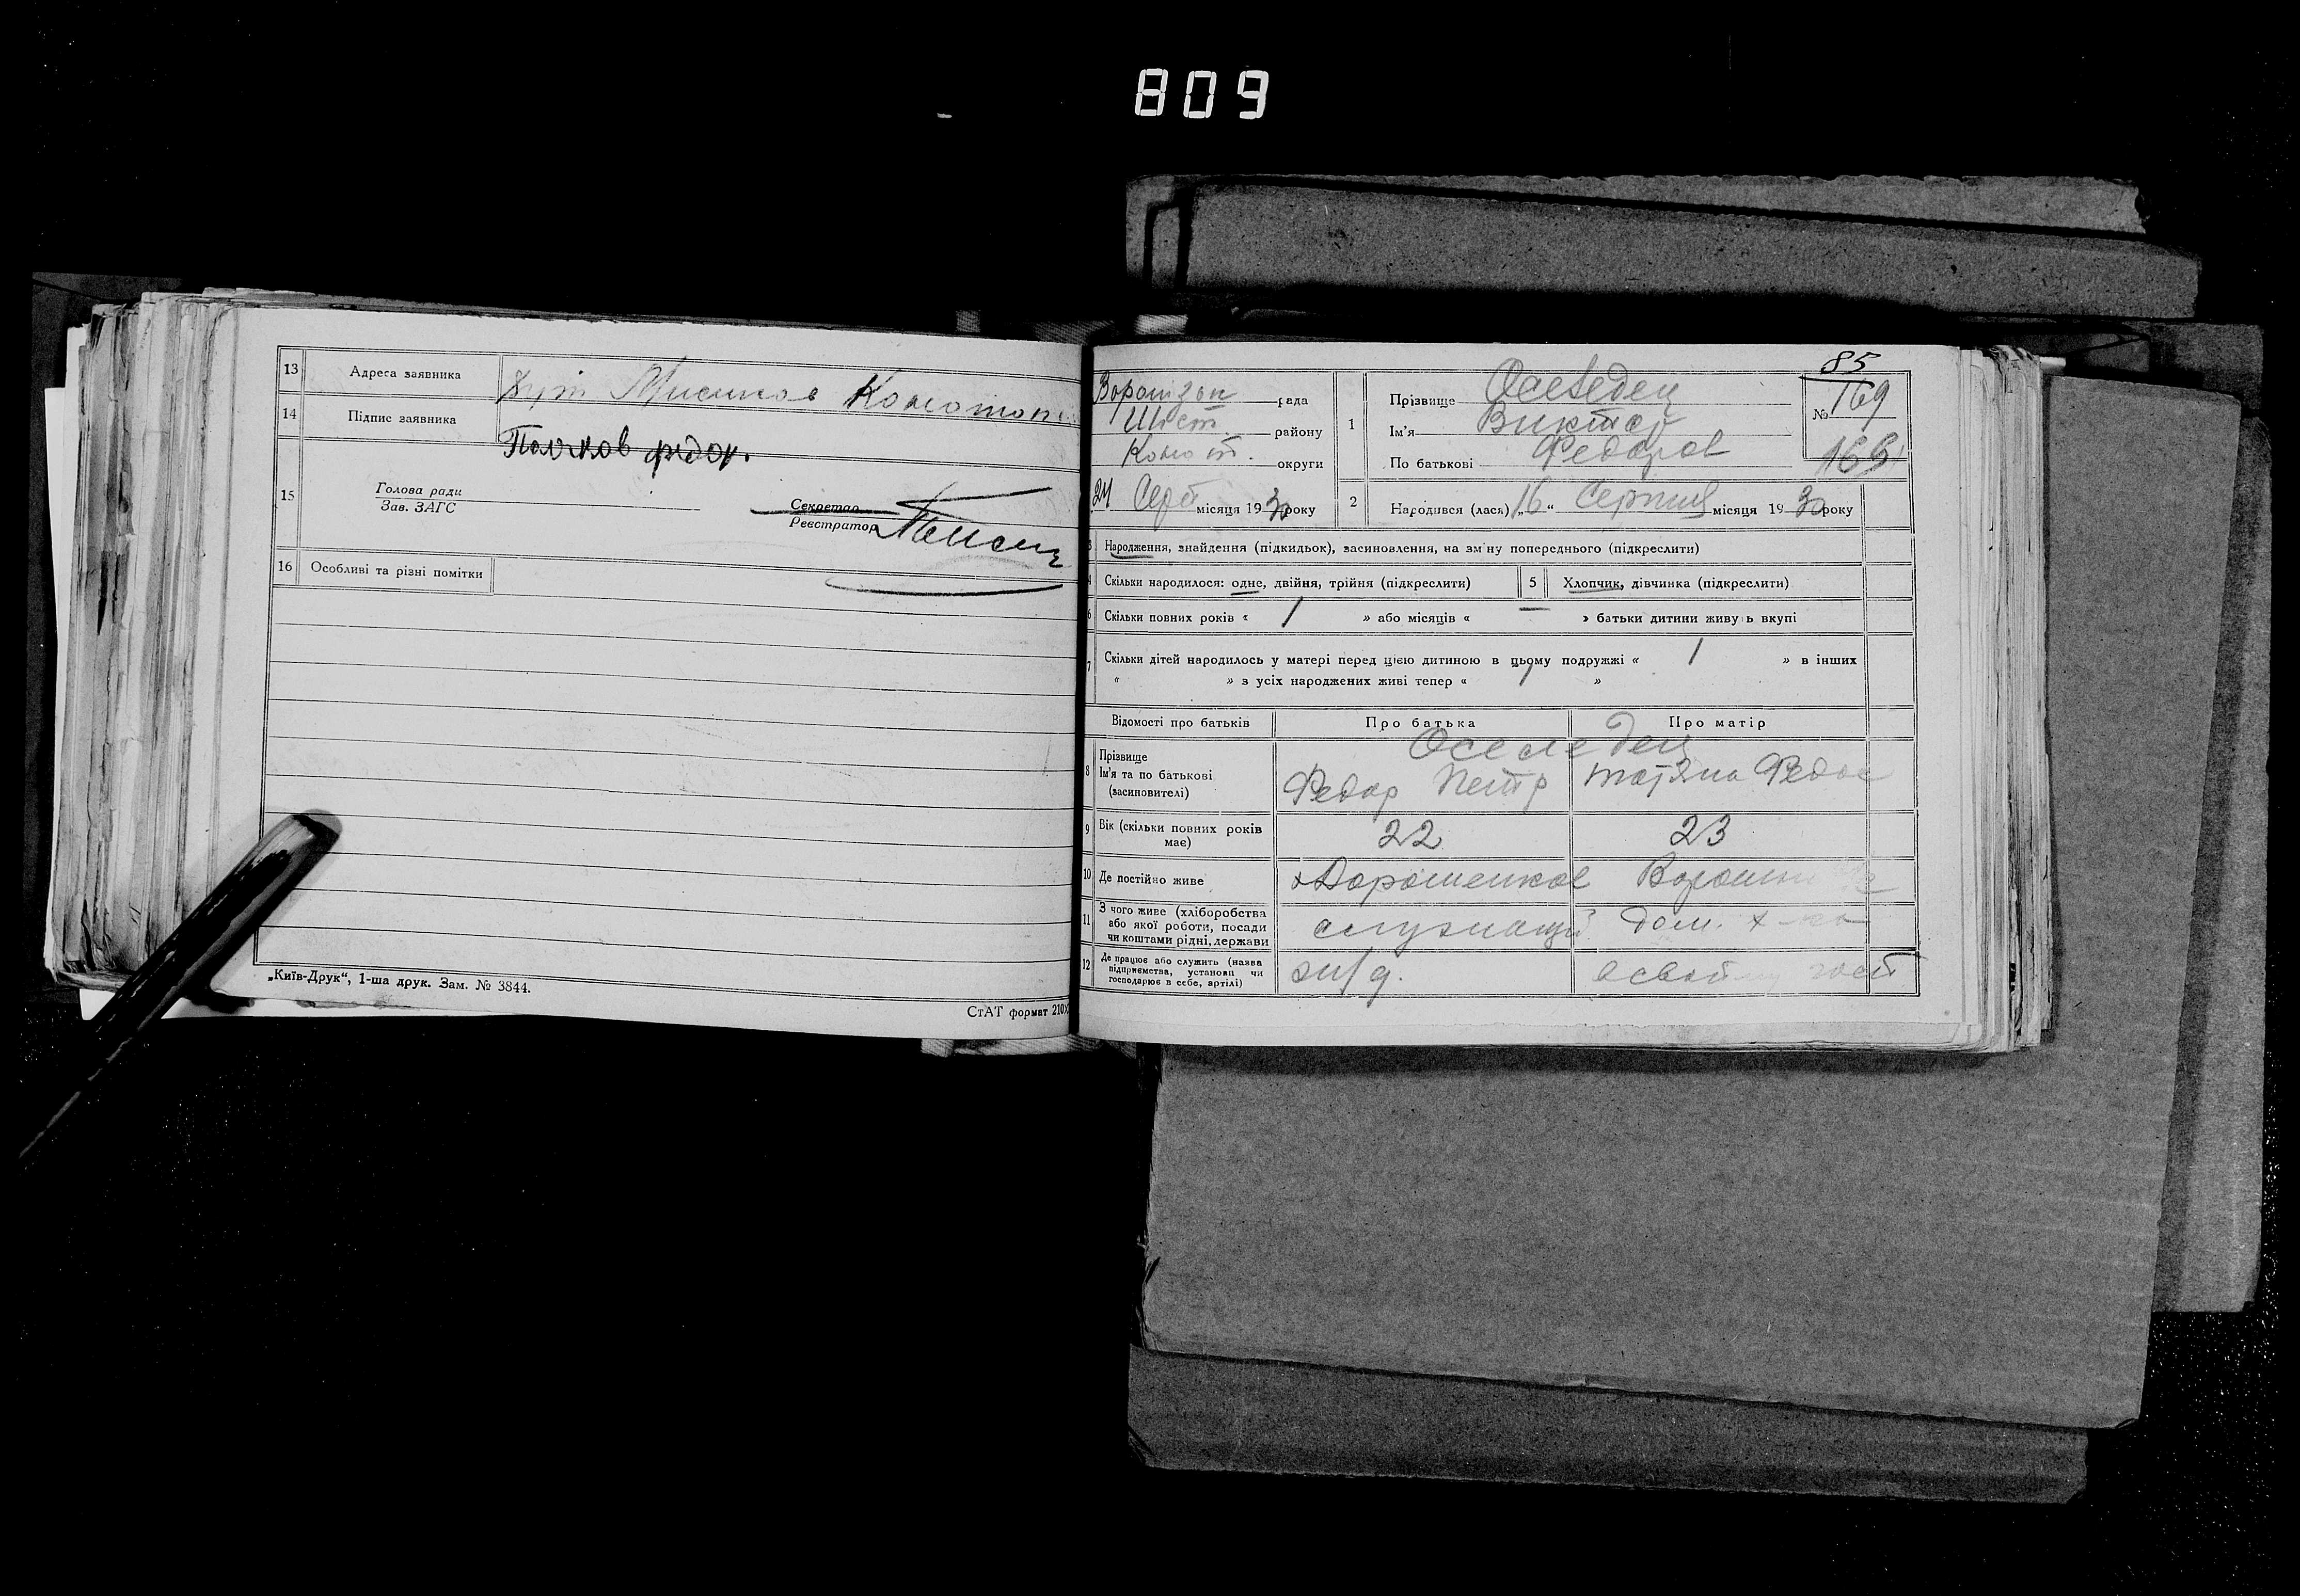 809
13 Адреса заявника хут Мисиков Конотоп
14 Підпис заявника
Поляков федор.
15 Голова ради
Зав. ЗАГС
Секретар
Реєстратор
16 Особливі та різні помітки
„Київ-Друк“, 1-ша друк. Зам. № 3844.
СтАТ формат 210
85
рада
Шост. району
Коно т. округи
24 Серп місяця 1930 року
1 Прізвище Оселедец
Ім’я Виктор
По батькові Федоров
№ 169
169
2 Народився (лася) „16“ Серпня місяця 1930 року
Народження, знайдення (підкидьок), засиновлення, на зміну попереднього (підкреслити)
Скільки народилося: одне, двійня, трійня (підкреслити) 5 Хлопчик, дівчинка (підкреслити)
6 Скільки повних років « 1 » або місяців « — » батьки дитини живуть вкупі
7 Скільки дітей народилось у матері перед цією дитиною в цьому подружжі « 1 » в інших
« » з усіх народжених живі тепер « 1 »
Відомості про батьків Про батька Про матір
Оселедец
8 Прізвище
Ім’я та по батькові
(засиновителі)
Федор Петр Татяна Федос
9 Вік (скільки повних років має) 22 23
10 Де постійно живе х Дорошенков
11 З чого живе (хліборобства
або якої роботи, посади
чи коштами рідні, держави
служащий дом. х-во
12 Де працює або служить (назва
підприємства, установи чи
господарює в себе, артілі)
ж/д.